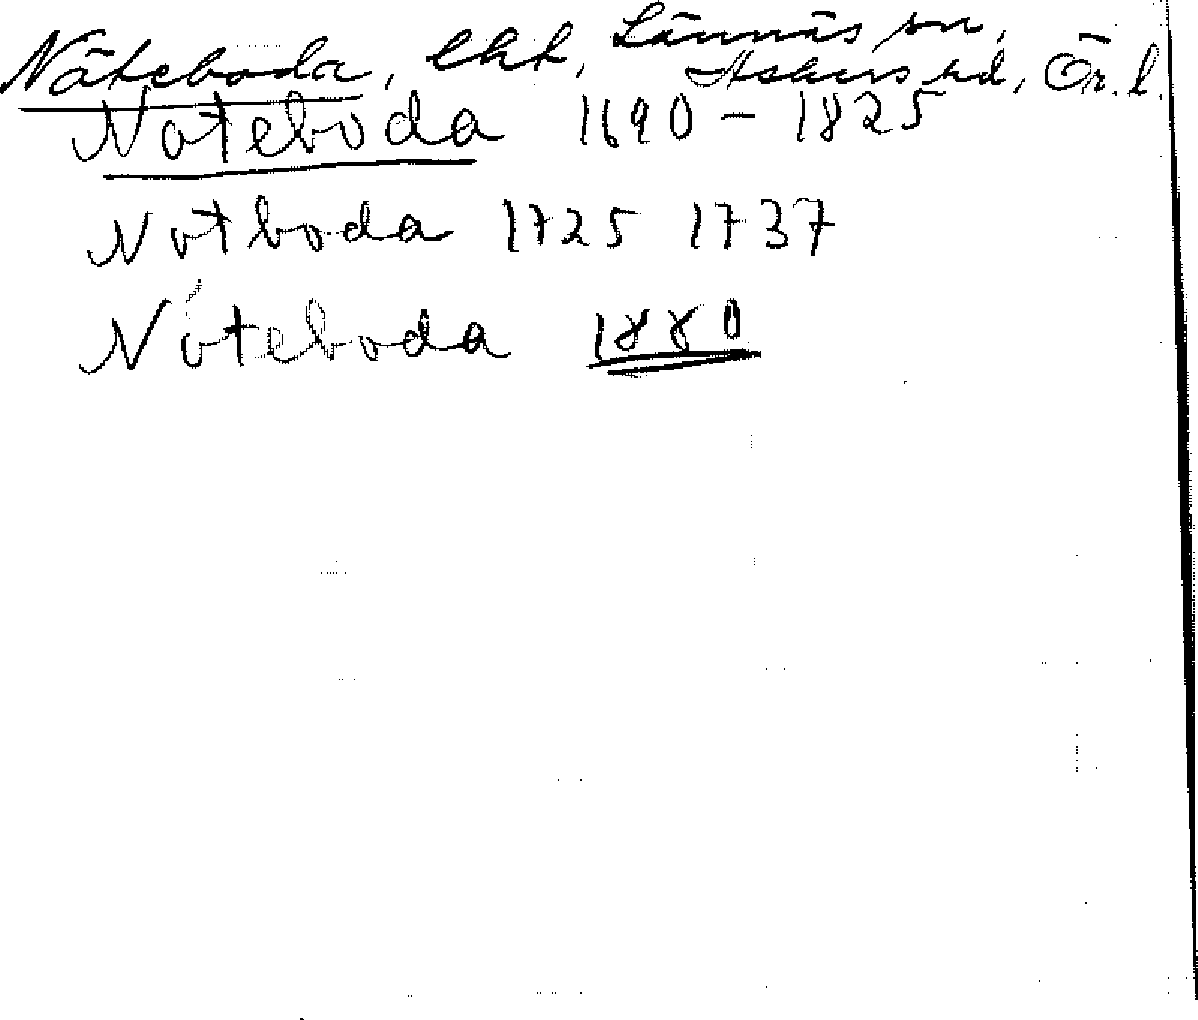 Näteboda, lht, Lännäs sn,
Askers hd, Ör. l.
Noteboda 1690 – 1825
Notboda 1725 1737
Nóteboda 1880